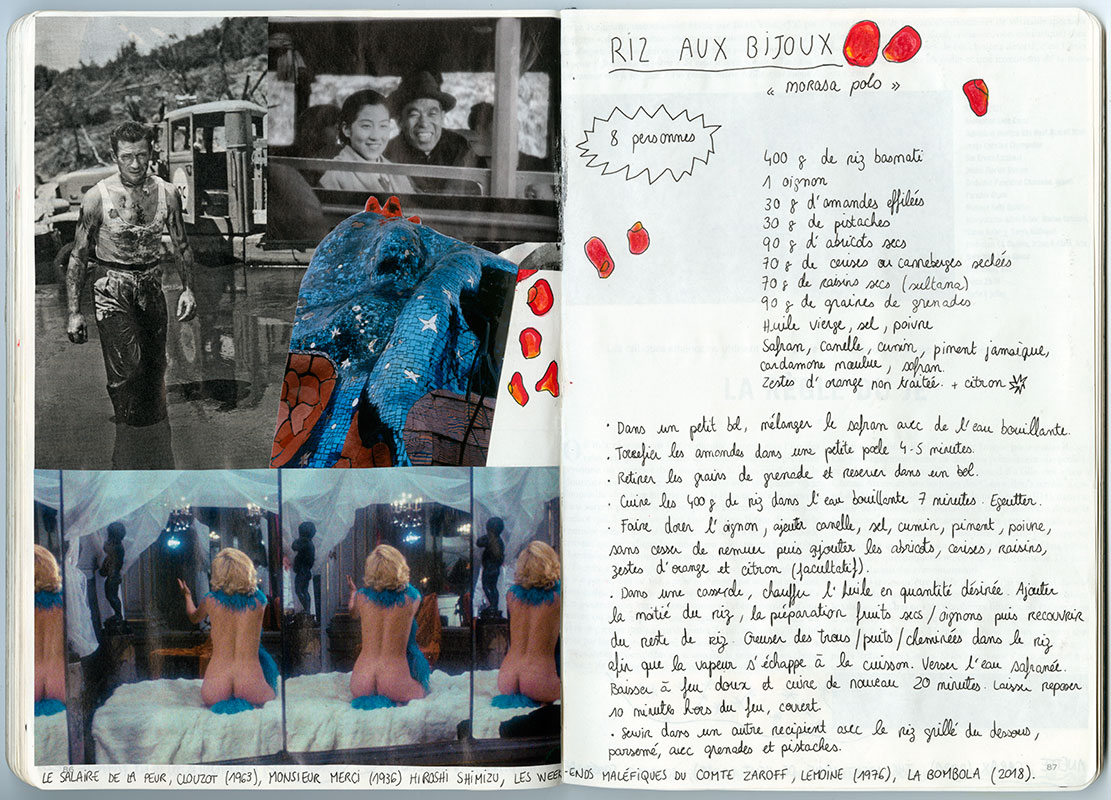 RIZ AUX BIJOUX
« MORASA POLO »
8 personnes
400 g de riz basmati
1 oignon
30 g d'amandes effilées
30 g de pistaches
90 g d'abricots secs
70 g de cerises ou canneberges sechées
70 g de raisins secs (sultana)
90 g de graines de grenades
Huile vierge, sel, poivre
Safran, canelle, cumin, piment jamaïque,
cardamone moulue, safran.
Zestes d'orange non traitée. + citron
• Dans un petit bol, mélanger le safran avec de l'eau bouillante.
• Torrefier les amandes dans une petite poële 4-5 minutes.
• Retirer les grains de grenade et reserver dans un bol.
• Cuire les 400 g de riz dans l'eau bouillante 7 minutes. Egoutter.
• Faire dorer l'oignon, ajouter canelle, sel, cumin, piment, poivre,
sans cesser de remuer puis ajouter les abricots, cerises, raisins,
zestes d'orange et citron (facultatif).
• Dans une casserole, chauffer l'huile en quantité désirée. Ajouter
la moitié du riz, la préparation fruits secs / oignons puis recouvrir
du reste de riz. Creuser des trous / puits / cheminées dans le riz
afin que la vapeur s'échappe à la cuisson. Verser l'eau safranée.
Baisser à feu doux et cuire de nouveau 20 minutes. Laisser reposer
10 minutes hors du feu, couvert.
• Servir dans un autre recipient avec le riz grillé du dessous,
parsemé, avec grenades et pistaches.
LE SALAIRE DE LA PEUR, CLOUZOT (1963), MONSIEUR MERCI (1936) HIROSHI SHIMIZU, LES WEEK-ENDS MALÉFIQUES DU COMTE ZAROFF, LEMOINE (1976), LA BOMBOLA (2018).
87